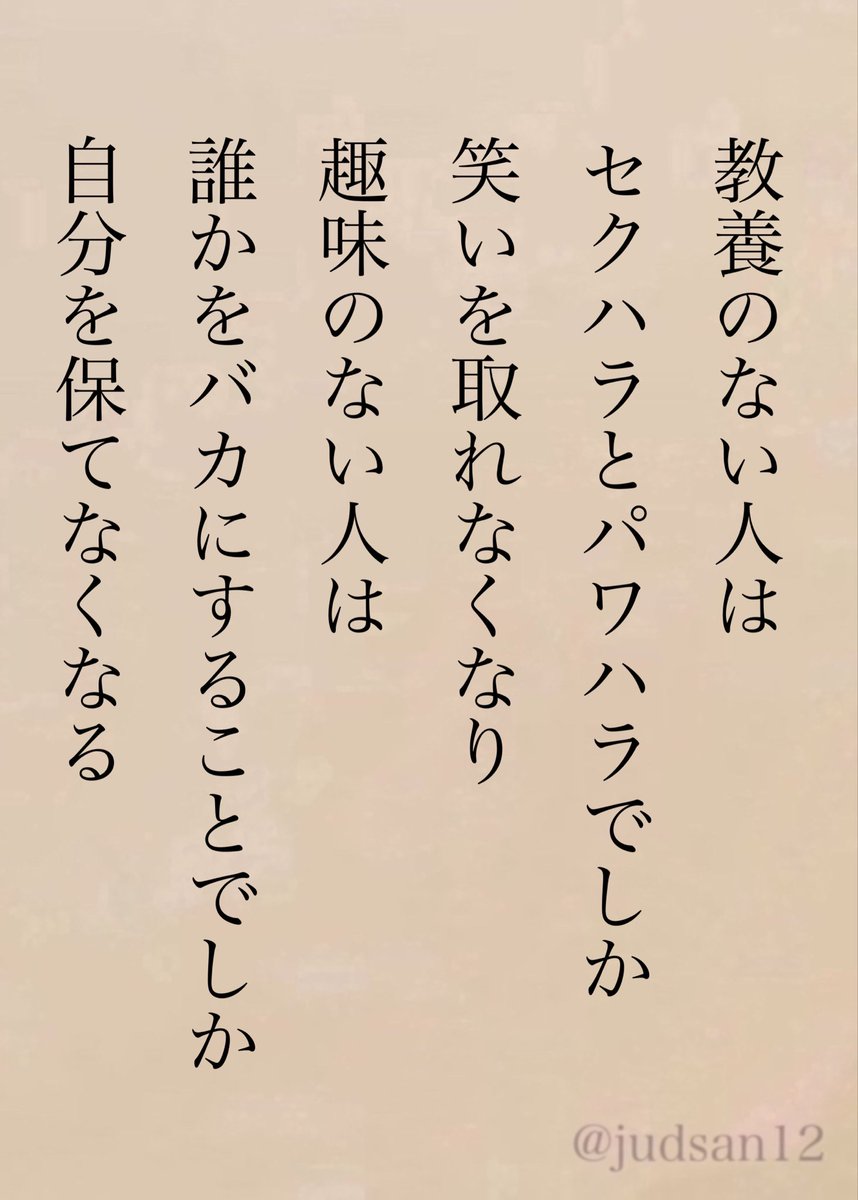 教養のない人は
セクハラとパワハラでしか
笑いを取れなくなり
趣味のない人は
誰かをバカにすることでしか
自分を保てなくなる
@judsan12